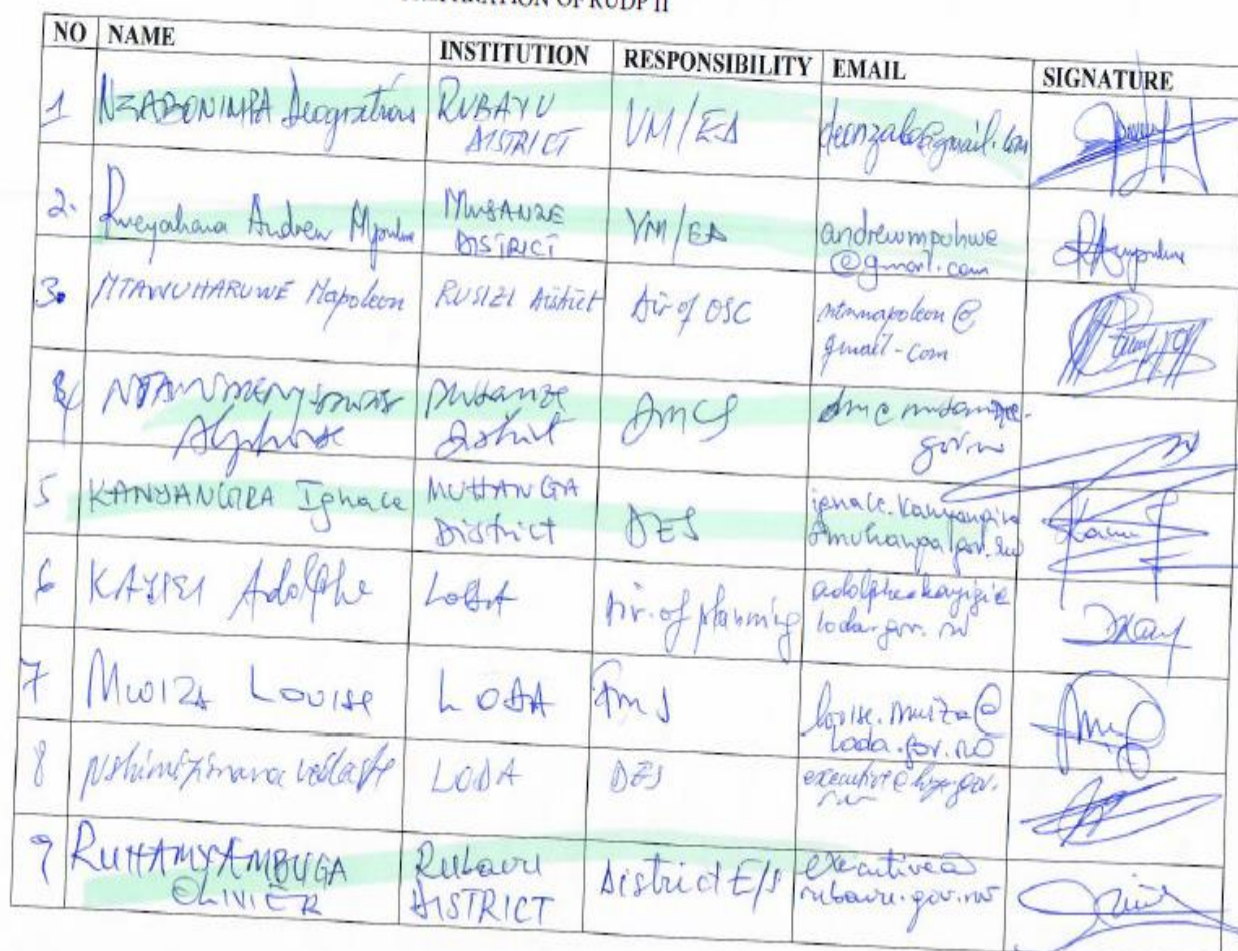 PREPARATION OF RUDP II
NO NAME INSTITUTION RESPONSIBILITY EMAIL SIGNATURE
1 NZABONIMPA Deogratias RUBAVU DISTRICT VM/ED deonzabo@gmail.com
2. Rweyahana Andrew Mpuhwe MUSANZE DISTRICT VM/ED andrewmpuhwe
@gmail.com
3. NTAWUHARUWE Napoleon RUSIZI District Dir of OSC ntnnapoleon@
gmail.com
4 Alphonse Musanze District DMCS
gov.rw
5 KANYANGIRA Ignace MUHANGA District DES ignace.kanyangira
@muhanga.gov.rw
6 KAYISI Adolphe LODA Dir. of planning
loda.gov.rw
7 MWIZA Louise LODA louise.mwiza@
loda.gov.rw
8 Nshimiyimana vedaste LODA DES
9 RUHAMYAMBUGA OLIVIER Rubavu DISTRICT District E/S executive@
rubavu.gov.rw